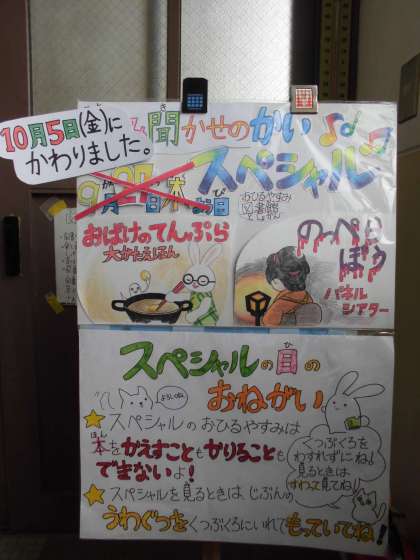 10月5日(金)に
かわりました。
聞かせのかい
き
スペシャル
9月27日木よう日
おばけのてんぷら
大かたえほん
おひるやすみ
図書館
としょかん
のっぺらぼう
パネル
シアター
スペシャルの日の
ひ
おねがい
よろしくね
★スペシャルのおひるやすみは
本をかえすこともかりることも
ほん
できないよ!
★スペシャルを見るときは、じぶんの
うわぐつをくつぶくろにいれてもっていてね!
くつぶくろを
わすれずにね!
見るときは
すわって見てね!